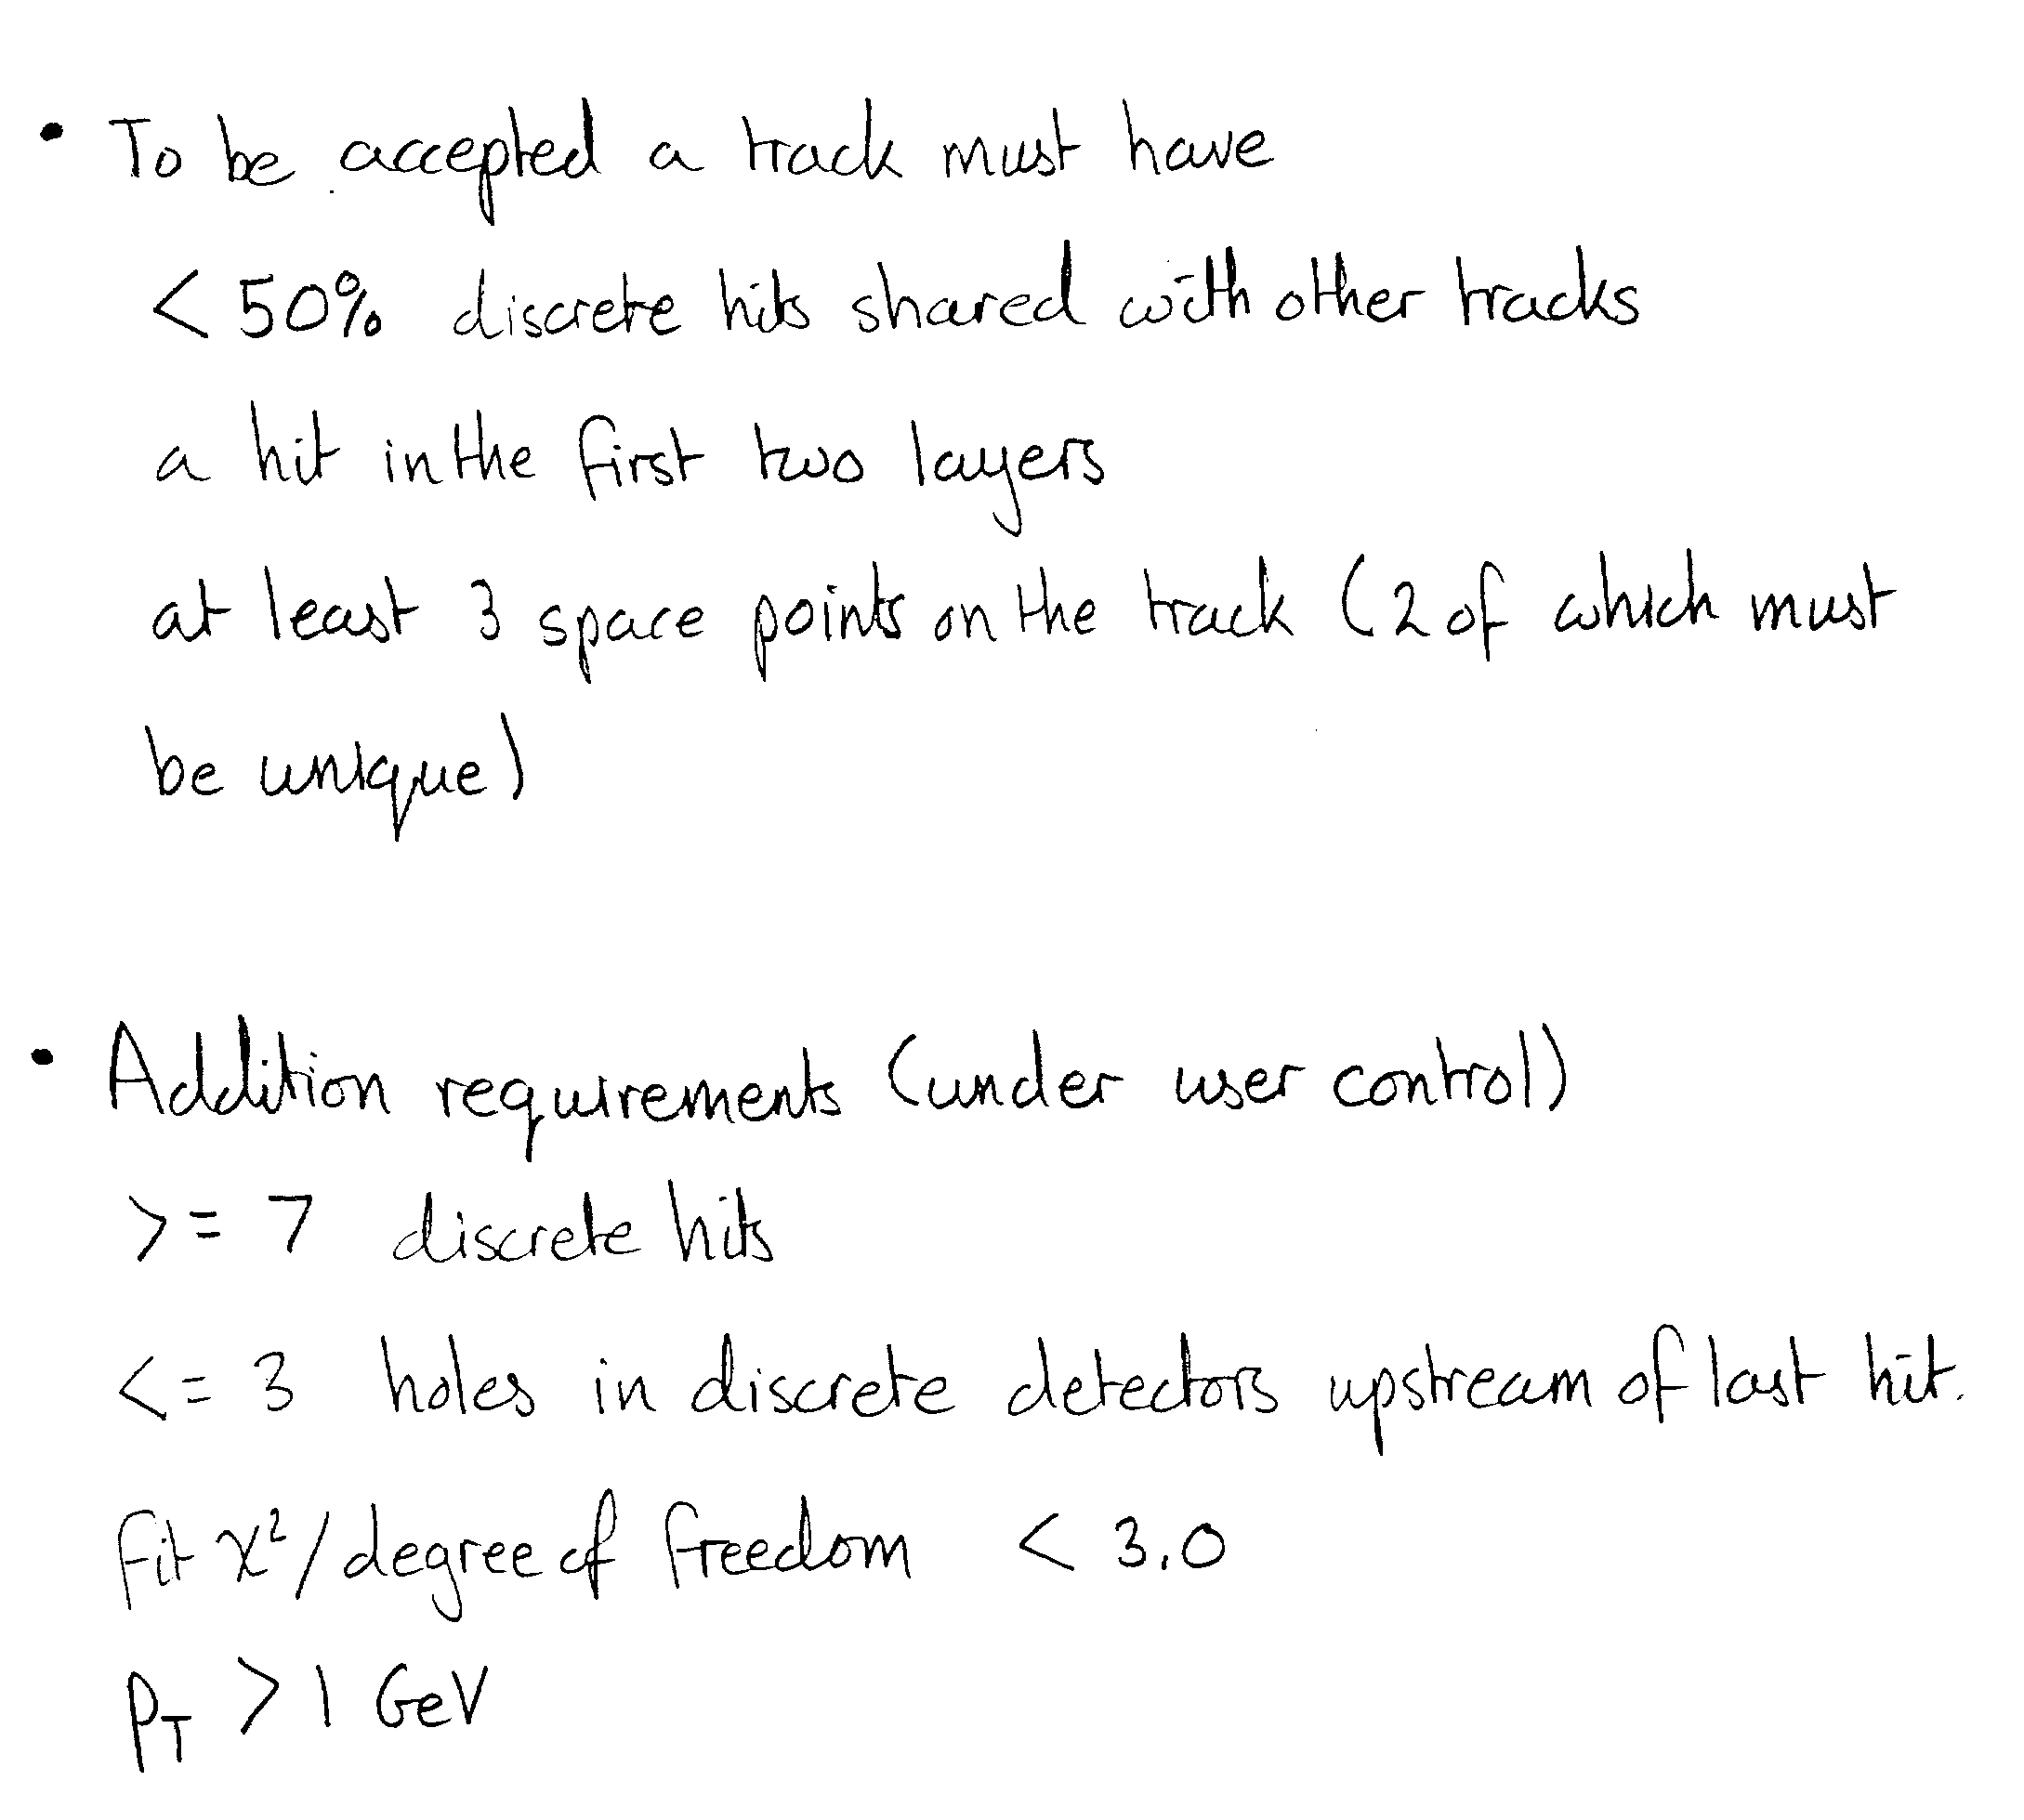 • To be accepted a track must have
< 50% discrete hits shared with other tracks
a hit in the first two layers
at least 3 space points on the track (2 of which must
be unique)
• Addition requirements (under user control)
>= 7 discrete hits
<= 3 holes in discrete detectors upstream of last hit.
Fit χ²/degree of freedom < 3.0
P_T > 1 GeV